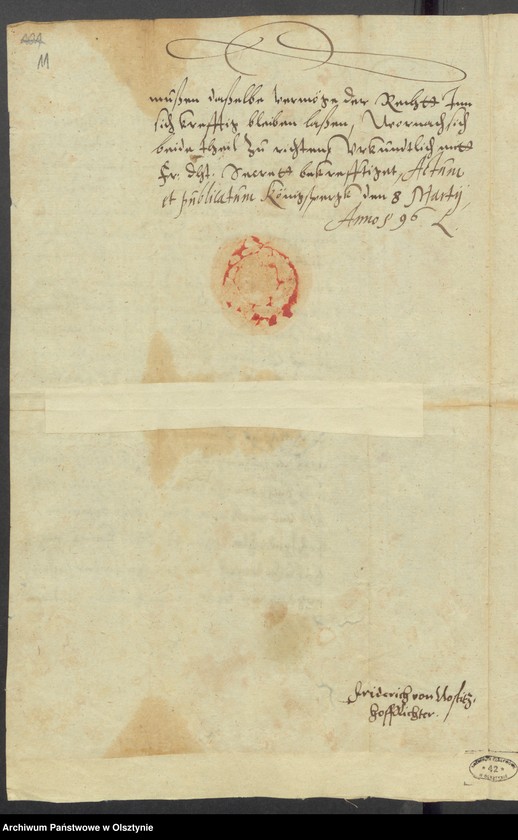 11
mußen daßelbe vermöge der Rechtt Inn
sich krefftig bleiben laßen, Wornach sich
beide theil zu richten, Urkundtlich mitt
Fr. dht. Secrett bekrefftiget, Actum
et publicatum Königsperg den 8 Martij
Anno 96
Friderich von Nostitz,
HoffRichter.
42
Archiwum Państwowe w Olsztynie